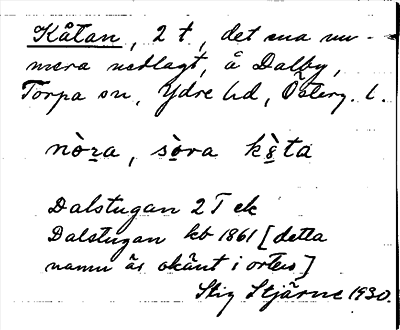 Kåtan, 2 t, det ena nu-
mera nedlagt, å Dalby,
Torpa sn, Ydre hd, Österg. l.
nòra, sòra kò̀ta
Dalstugan 2 T ek
Dalstugan kb 1861 [detta
namn är okänt i orten]
Stig Stjärne 1930.